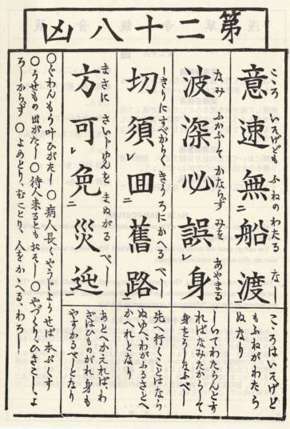 第二十八凶
こゝろ いそげども ふねの わたる なし
意速無船渡
こゝろはいそげど
もふねがわたら
ぬなり
なみ ふかふして かならず みを あやまる
波深必誤身
しいてわたらんとす
ればなみたかうして
身をうしなふべし
しきりにすべからく きうろにかへる べし
切須囬舊路
先へ行くことはなら
ぬゆへわがふるさとへ
かへれとなり
まさに さいじゆんを まぬがる べし
方可免災迍
あとへかえればわ
ざはひものがれ身も
やすかるべしとなり
○ぐわんもう叶ひがたし ○病人長くやうじようせば本ぷくす
○うせもの出がたし ○待人来るともおそし ○やづくり、ひきこし、よ
ろしからず ○よめとり、むことり、人をかゝへる、わろし